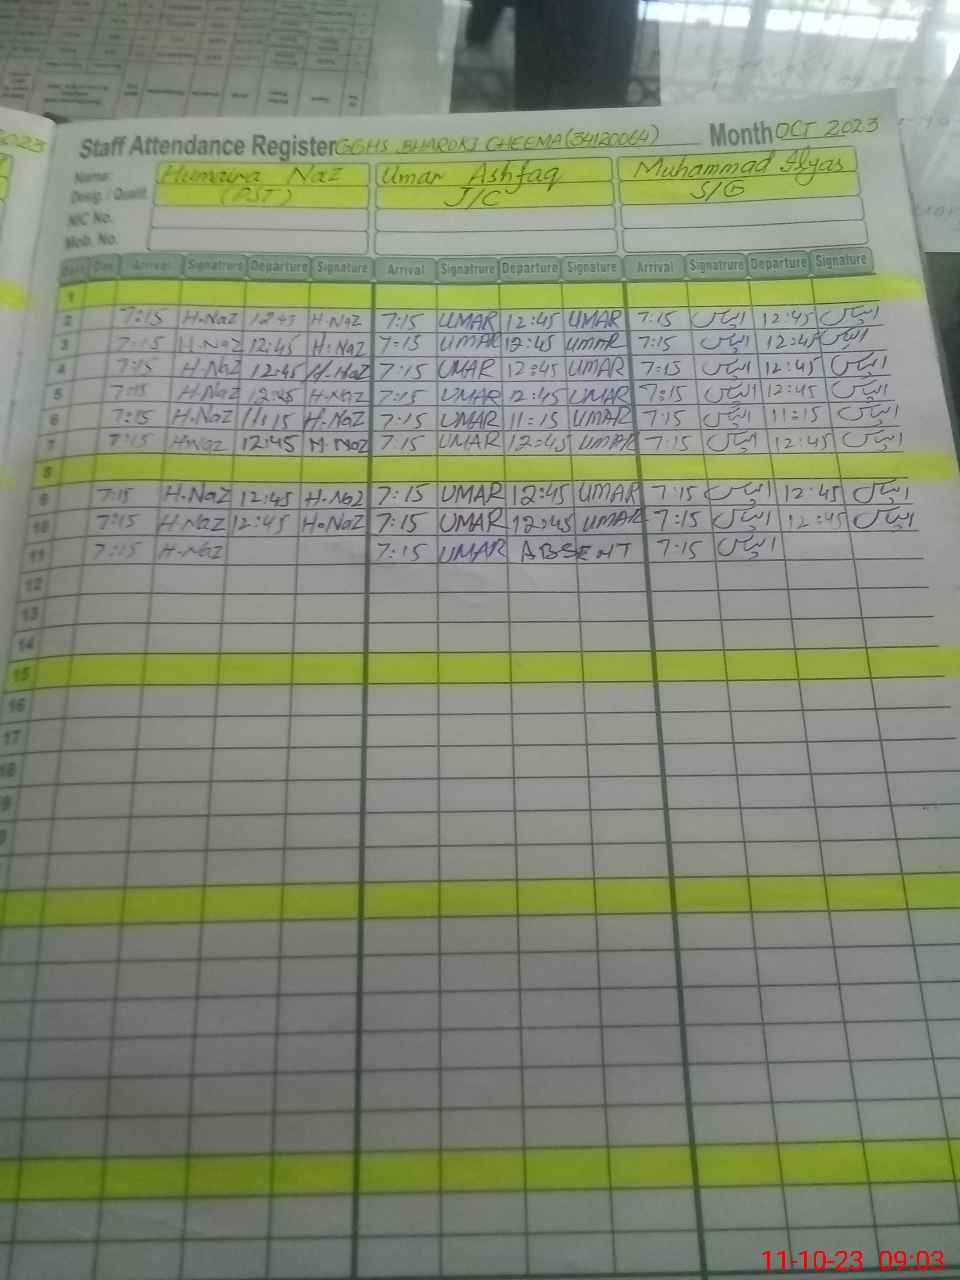 2023
Staff Attendance Register GGHS BHAROKI CHEEMA (34120064) Month OCT 2023
Name: Humaira Naz Umar Ashfaq Muhammad Ilyas
Desig. / Qualif. (PST) J/C S/G
NIC No.
Mob. No.
Date Day Arrival Signatrure Departure Signature Arrival Signatrure Departure Signature Arrival Signatrure Departure Signature
1
2 7:15 H.Naz 12:45 H.Naz 7:15 UMAR 12:45 UMAR 7:15 الیاس 12:45 الیاس
3 7:15 H.Naz 12:45 H.Naz 7:15 UMAR 12:45 UMAR 7:15 الیاس 12:45 الیاس
4 7:15 H.Naz 12:45 H.Naz 7:15 UMAR 12:45 UMAR 7:15 الیاس 12:45 الیاس
5 7:15 H.Naz 12:45 H.Naz 7:15 UMAR 12:45 UMAR 7:15 الیاس 12:45 الیاس
6 7:15 H.Naz 11:15 H.Naz 7:15 UMAR 11:15 UMAR 7:15 الیاس 11:15 الیاس
7 7:15 H.Naz 12:45 H.Naz 7:15 UMAR 12:45 UMAR 7:15 الیاس 12:45 الیاس
8
9 7:15 H.Naz 12:45 H.Naz 7:15 UMAR 12:45 UMAR 7:15 الیاس 12:45 الیاس
10 7:15 H.Naz 12:45 H.Naz 7:15 UMAR 12:45 UMAR 7:15 الیاس 12:45 الیاس
11 7:15 H.Naz 7:15 UMAR ABSENT 7:15 الیاس
12
13
14
15
16
17
18
9
11-10-23 09:03